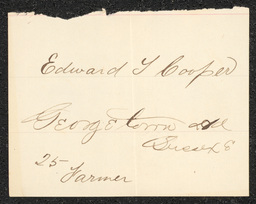 Edward T Cooper
Georgetown Del
Sussex C
25
Farmer